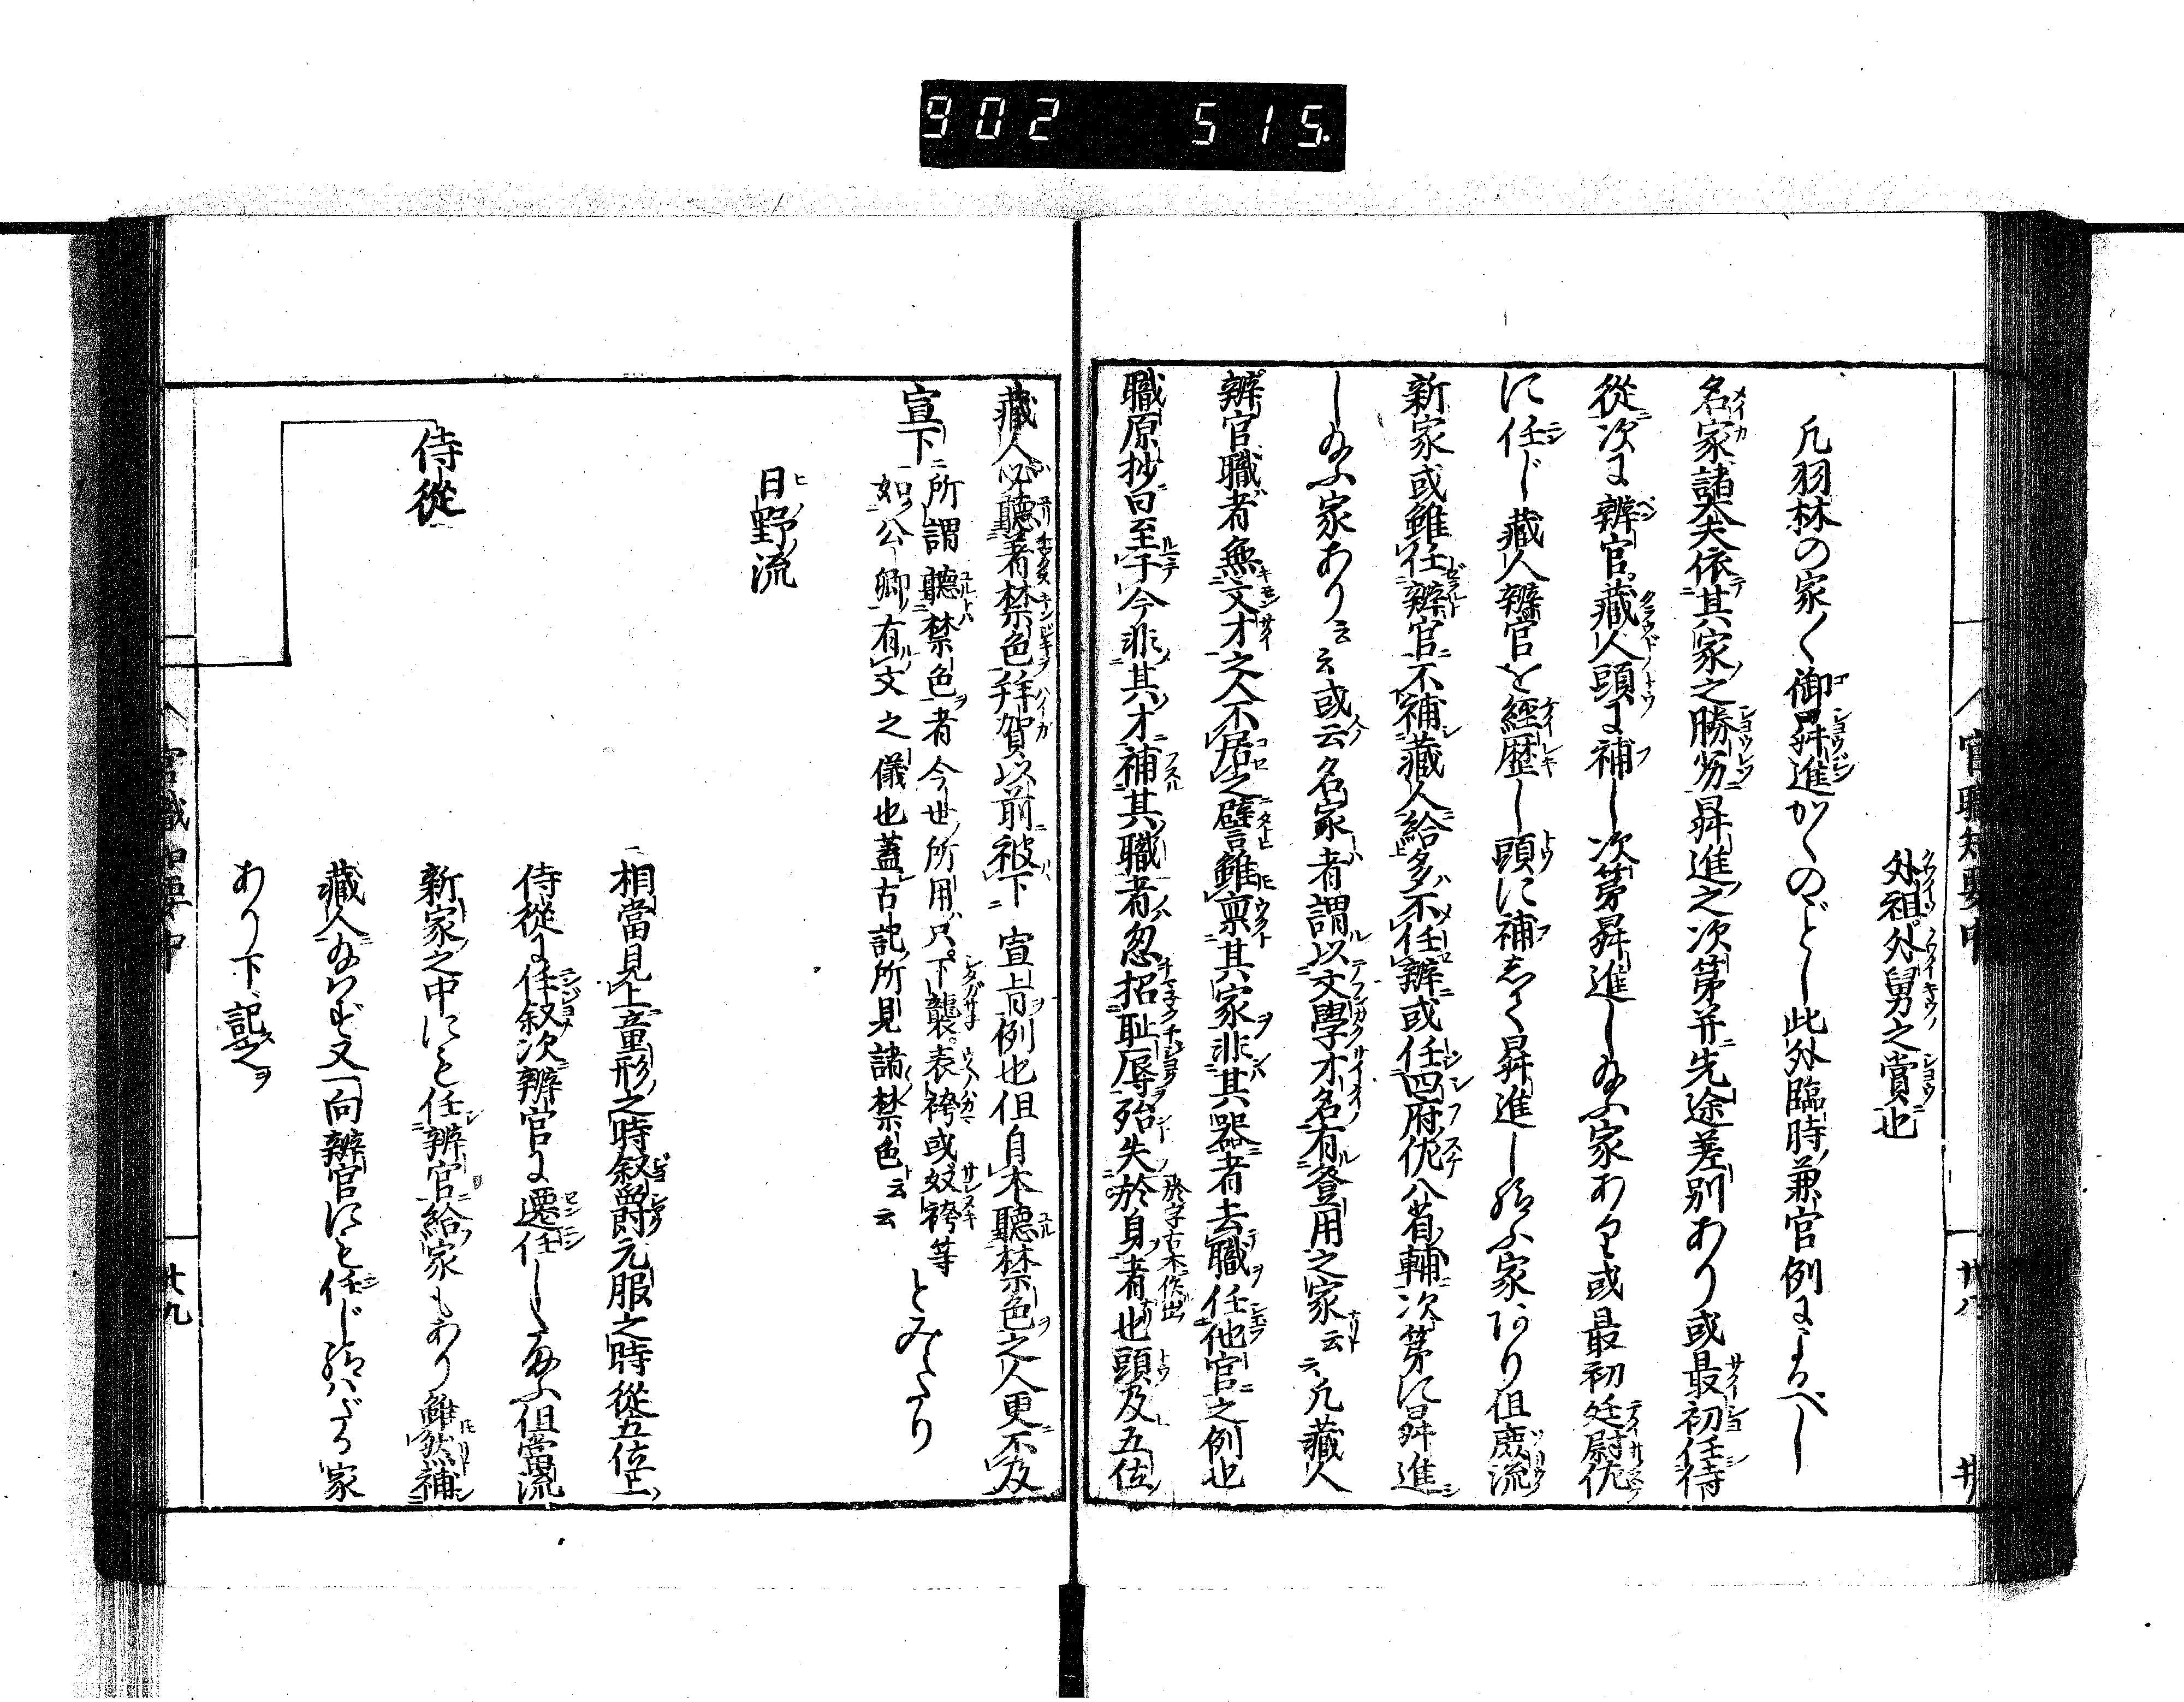 902 515.
官職知要中
卅八
外祖外舅之賞也
凡羽林の家〱御昇進かくのごとし此外臨時兼官例によるべし
名家諸大夫依其家之勝劣昇進之次第并先途差別あり或最初任侍
從次に辨官藏人頭に補し次第昇進し給ふ家あり或最初廷尉佐
に任じ藏人辨官を經歴し頭に補して昇進し給ふ家あり但庶流
新家或雖任辨官不補藏人給多不任辨或任四府佐八省輔次第に昇進
し給ふ家あり云云或云名家者謂以文學才名有登用之家云云凡藏人
辨官職者無文才之人不居之譬雖禀其家非其器者去職任他官之例也
職原抄曰至于今非其才補其職者忽招耻辱殆失於身者也頭及五位
於字古本作出
藏人必聽著禁色拜賀以前被下 宣旨例也但自本聽禁色之人更不及
宣下 所謂聽禁色者今世所用只下襲表袴或奴袴等
如公卿有文之儀也蓋古記所見諸禁色云云
とみえたり
日野流
相當見上童形之時叙爵元服之時從五位上
侍從
侍從に任叙次辨官に遷任し給ふ但當流
新家之中にも任辨官給家もあり雖然補
藏人給はず又一向辨官にも任じ給はざる家
あり下記之
官職知要中
卅九